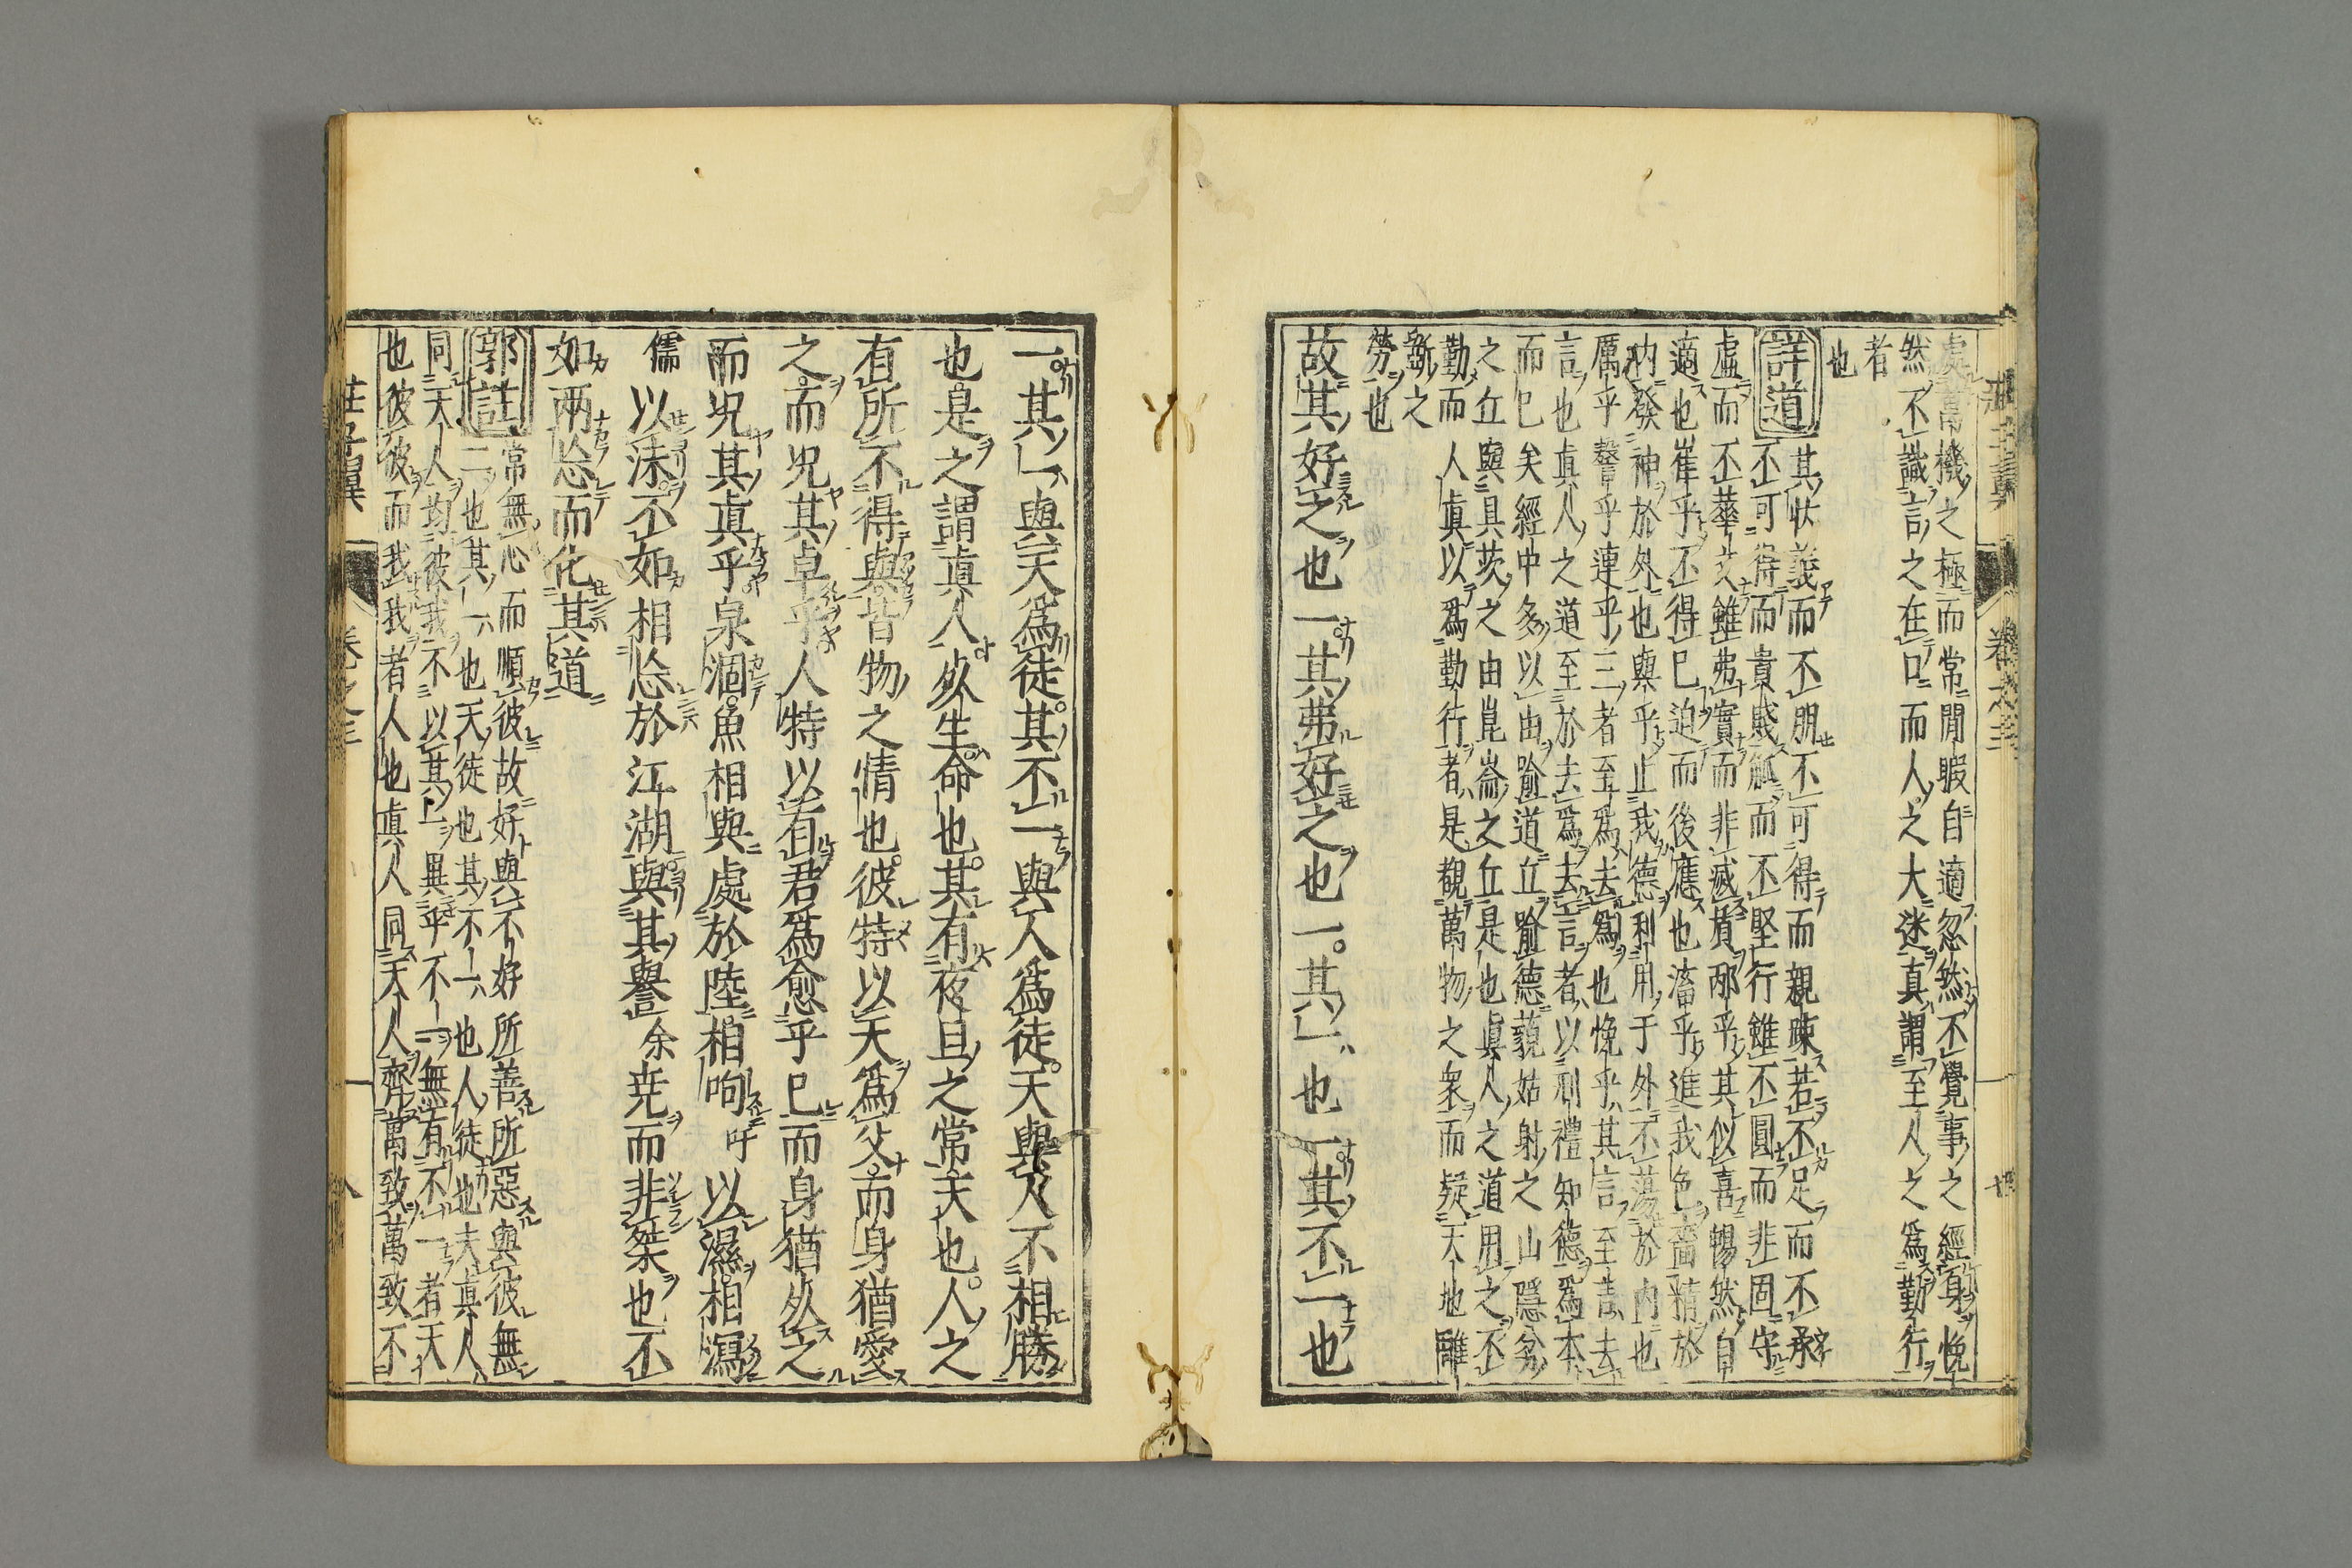 莊子翼 卷之三
處萬機之極而常閒暇自適忽然不覺事之經身悗
然不識言之在口而人之大迷真謂至人之爲勤行
者
也
詳道 其狀義而不朋不可得而親疎若不足而不承
不可得而貴賤觚而不堅行雖不圓而非固守
虛而不華文雖弗實而非滅質邴乎其似喜暢然自
適也崔乎不得已迫而後應也滀乎進我色蓄精於
内發神於外也與乎止我德利用于外不蕩於内也
厲乎謷乎連乎三者至爲去爲也悗乎其言至言去
言也真人之道至於去爲去言者以刑禮知德爲本
而已矣經中多以由喻道丘喻德藐姑射之山隱弅
之丘與具茨之由崑崙之丘是也眞人之道用之不
勤而人眞以爲勤行者是覩萬物之衆而疑天地雕
斵之
勞也
故其好之也一其弗好之也一其一也一其不一也
一其一與天爲徒其不一與人爲徒天與人不相勝
也是之謂眞人死生命也其有夜旦之常天也人之
有所不得與皆物之情也彼特以天爲父而身猶愛
之而况其卓乎人特以有君爲愈乎已而身猶死之
而况其眞乎泉涸魚相與處於陸相呴吁以濕相濡
儒以沫不如相忘於江湖與其譽余尭而非桀也不
如兩忘而化其道
郭註 常無心而順彼故好與不好所善所惡與彼無
二也其一也天徒也其不一也人徒也夫眞人
同天人均彼我不以其一異乎不一無有不一者天
也彼彼而我我者人也眞人同天人齊萬致萬致不
莊子翼 卷之三 八